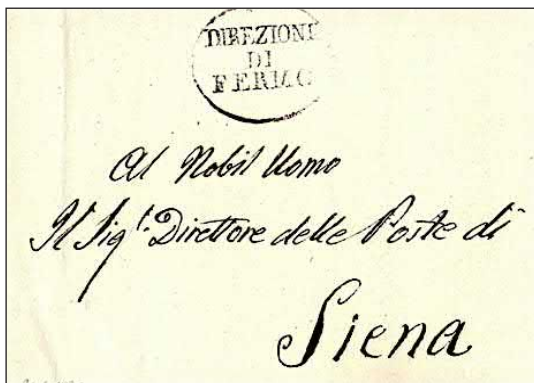 DIREZIONE
DI
FERMO
Al Nobil Uomo
Il Sigr. Direttore delle Poste di
Siena